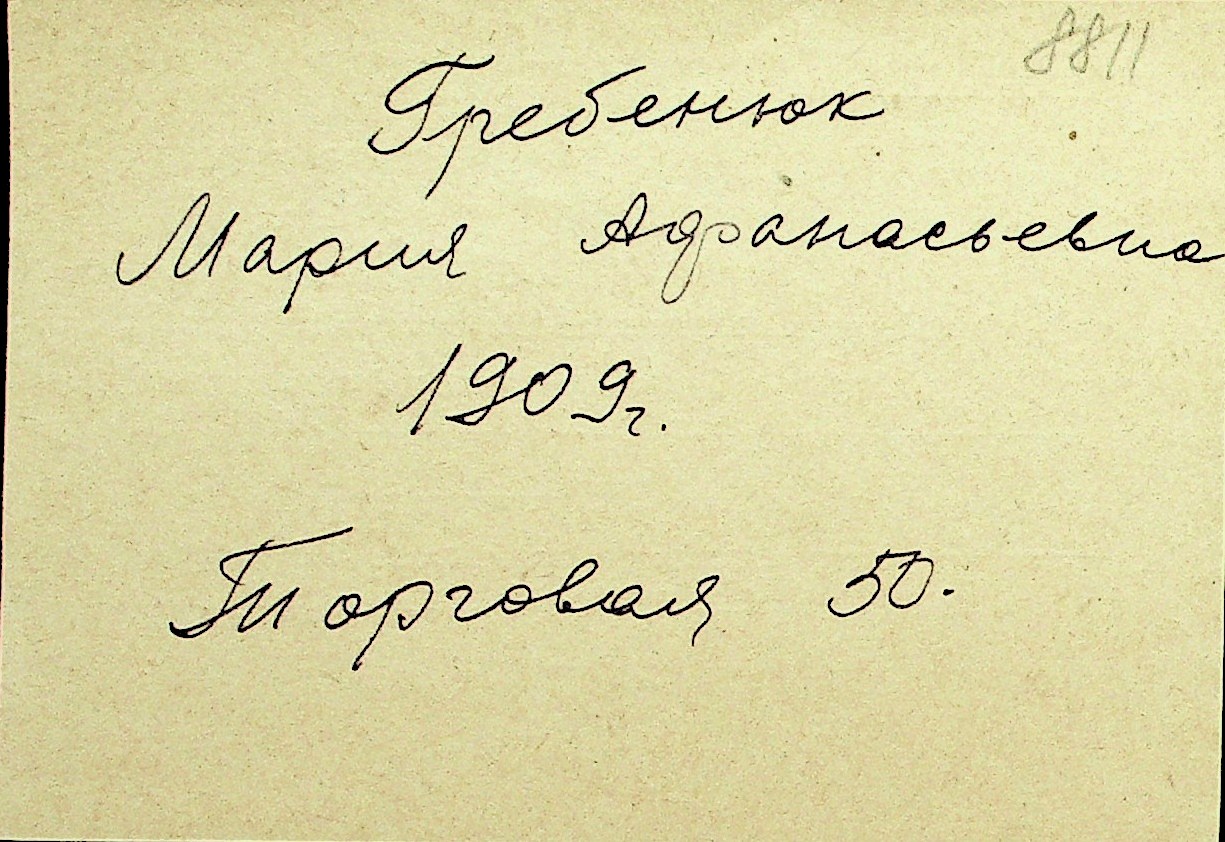 8811
Гребенюк
Мария Афанасьевна
1909г.
Торговая 50.